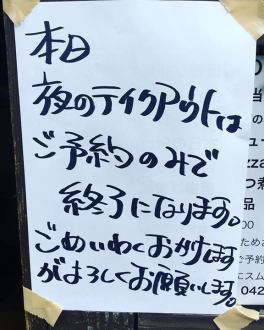 本日
夜のテイクアウトは
ご予約のみで
終了になります。
ごめいわくおかけします
がよろしくお願いします。
当
の
ュー
zza
つ煮
品
00
ためさ
ご予約
にスム
042